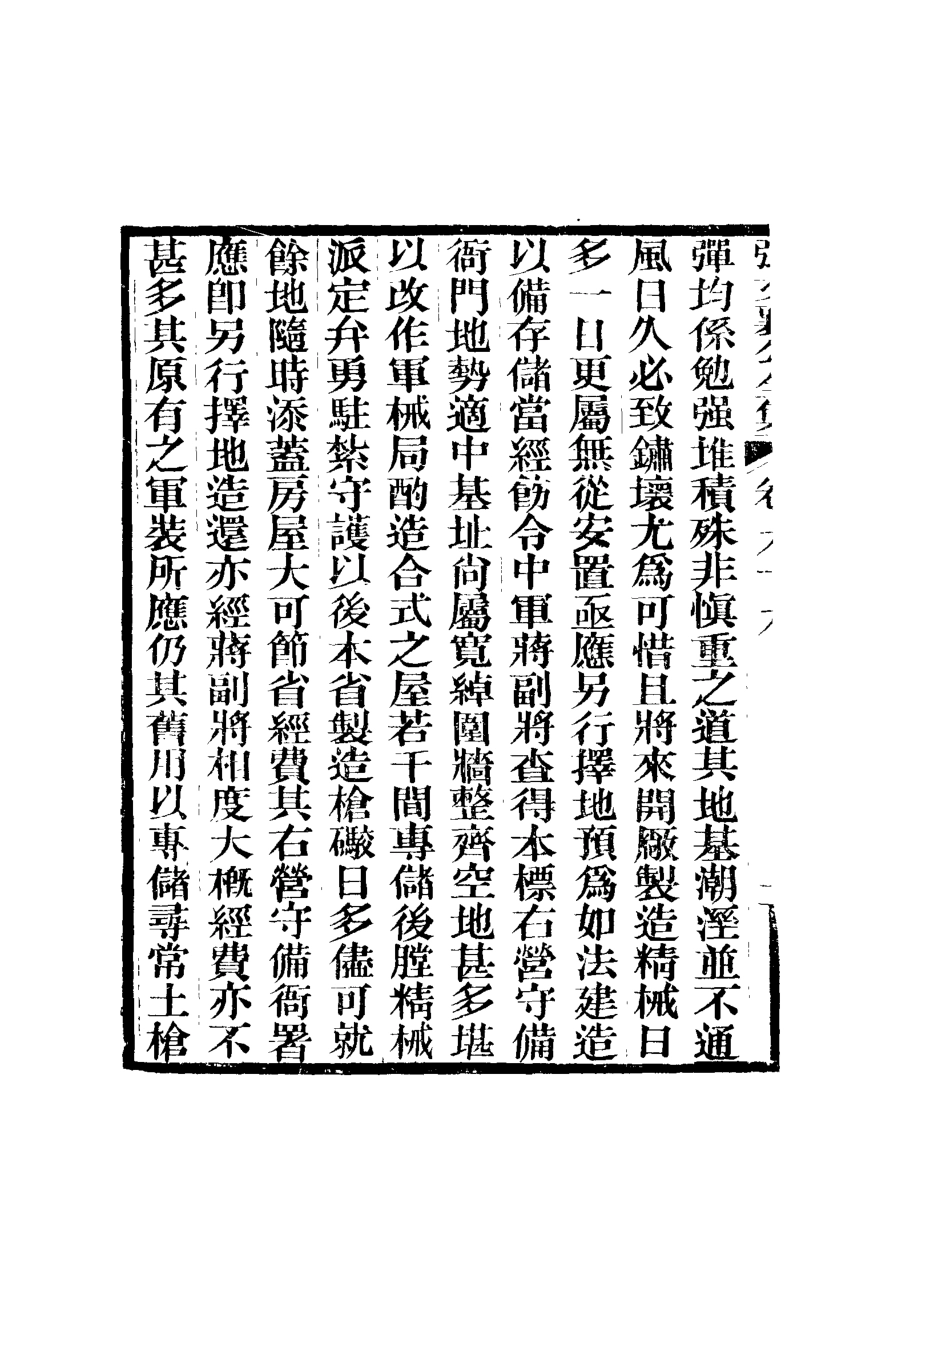 張文襄公全集 卷九十六
彈均係勉强堆積殊非愼重之道其地基潮溼並不通
風日久必致鏽壞尤爲可惜且將來開廠製造精械日
多一日更屬無從安置亟應另行擇地預爲如法建造
以備存儲當經飭令中軍蔣副將查得本標右營守備
衙門地勢適中基址尙屬寬綽圍牆整齊空地甚多堪
以改作軍械局酌造合式之屋若干間專儲後膛精械
派定弁勇駐紮守護以後本省製造槍礮日多儘可就
餘地隨時添蓋房屋大可節省經費其右營守備衙署
應卽另行擇地造還亦經蔣副將相度大槪經費亦不
甚多其原有之軍裝所應仍其舊用以專儲尋常土槍